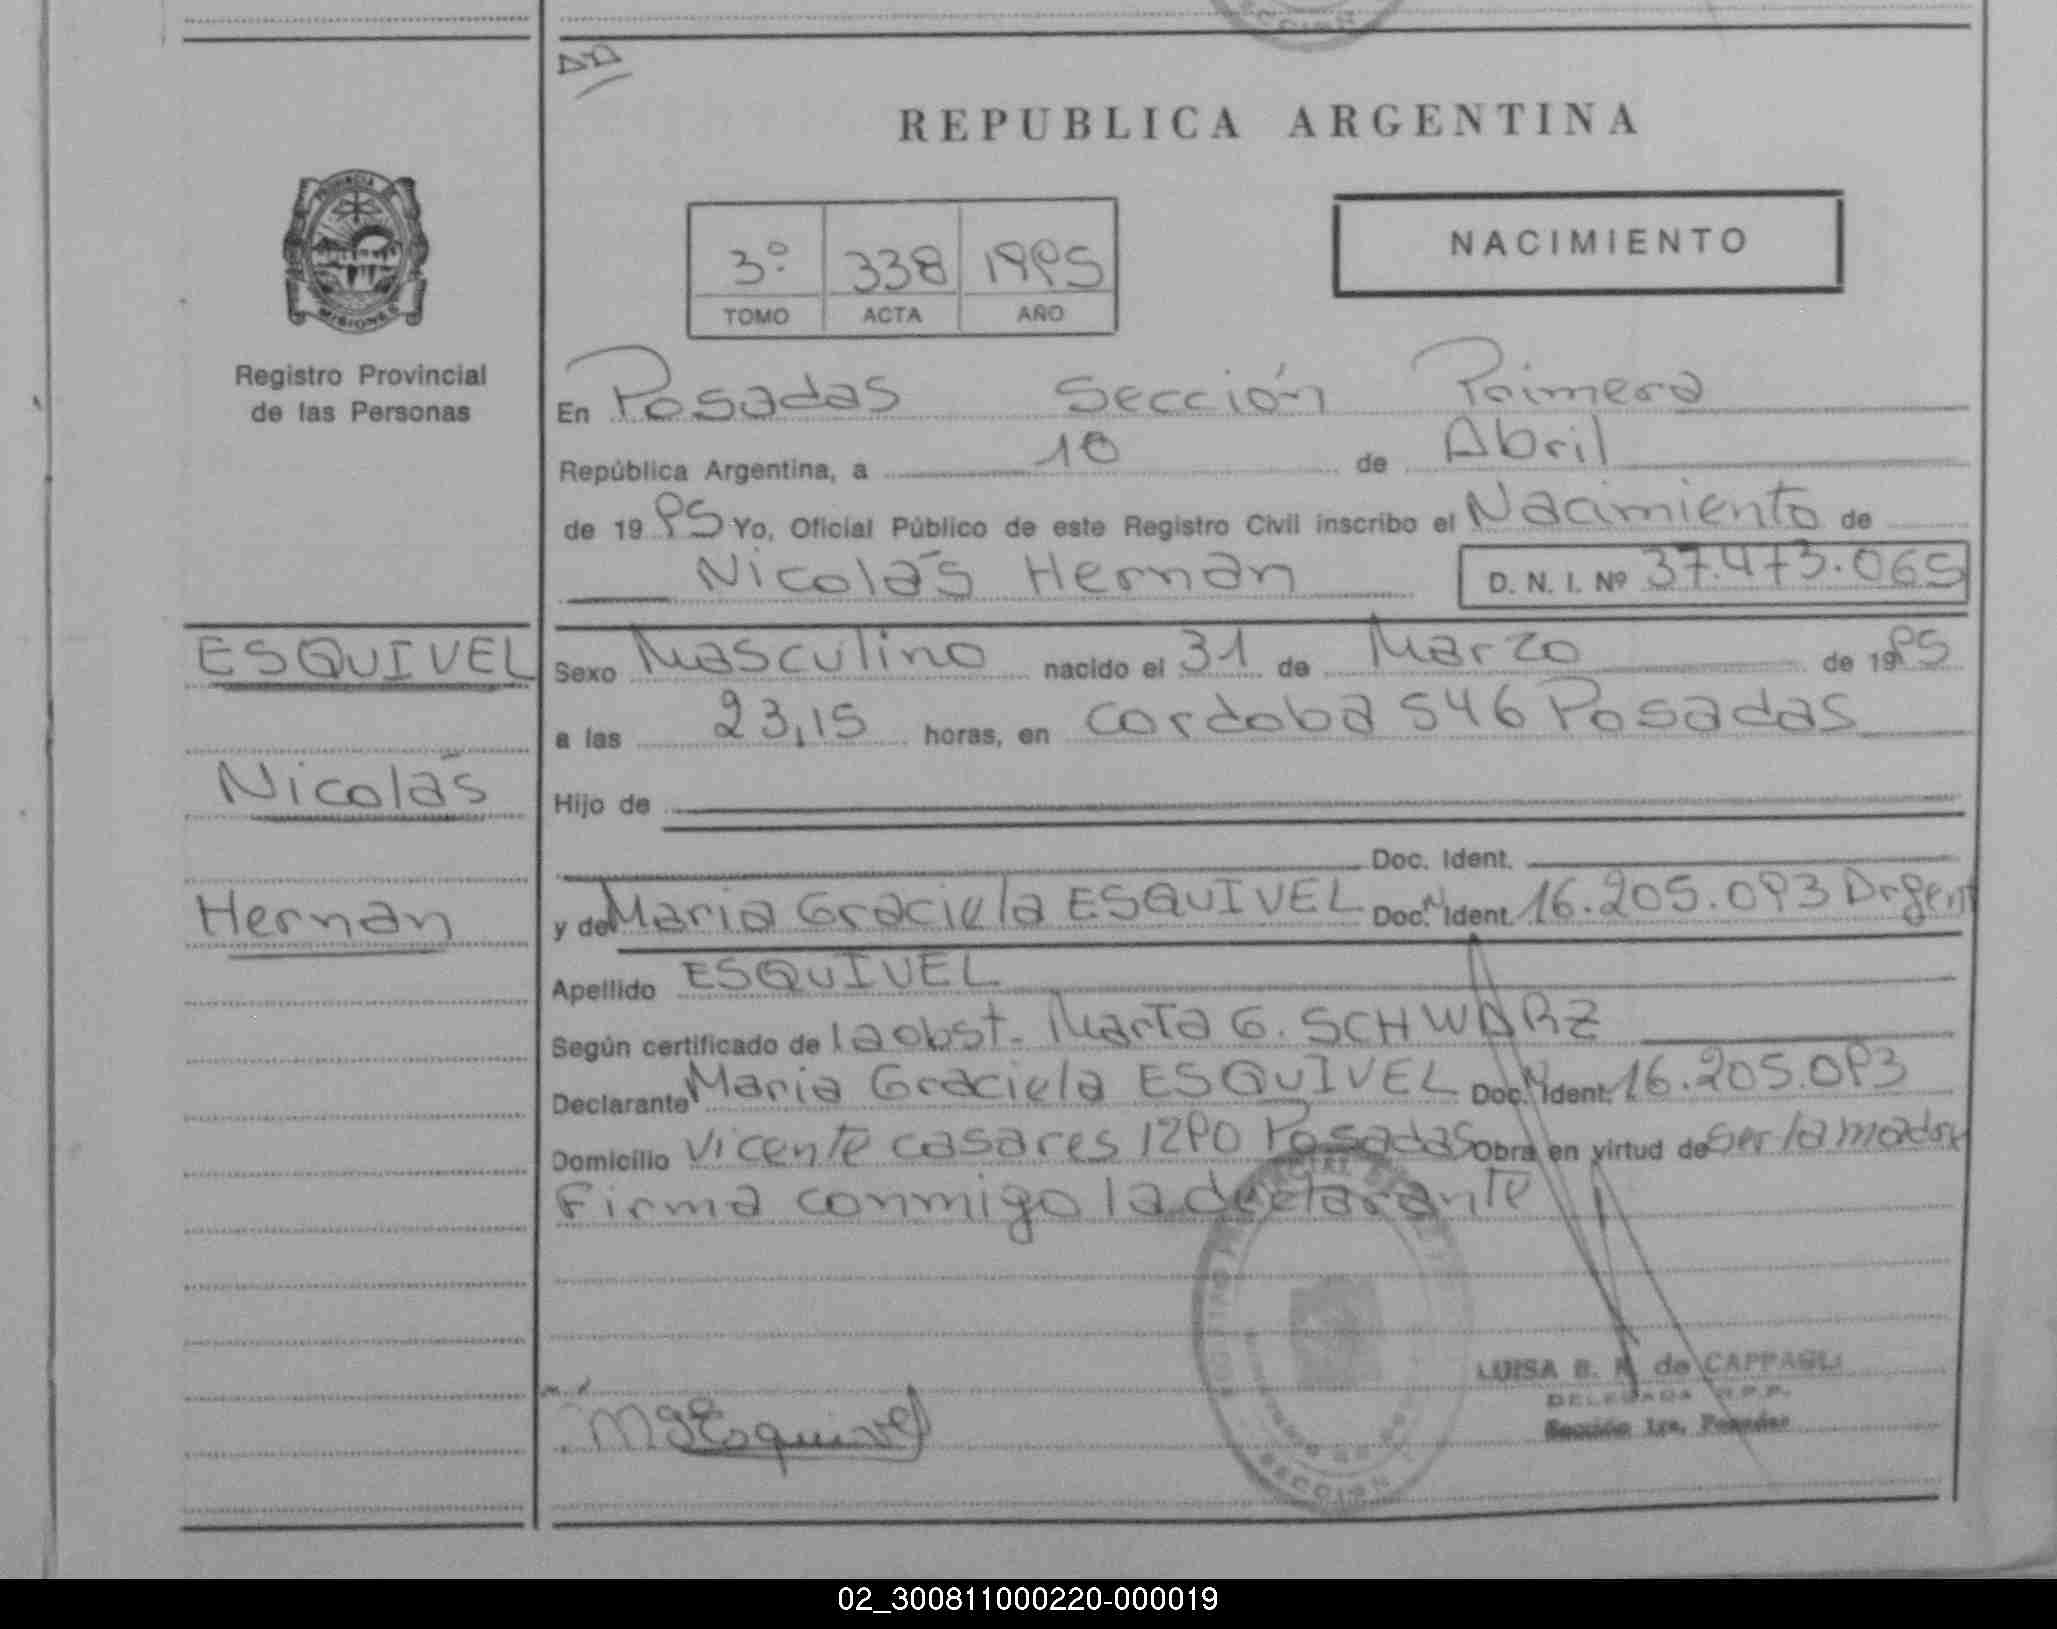 REPUBLICA ARGENTINA
PROVINCIA
MISIONES
Registro Provincial
de las Personas
3º 338 1995
TOMO ACTA AÑO
NACIMIENTO
En Posadas Sección Primera
República Argentina, a 10 de Abril
de 1995 Yo, Oficial Público de este Registro Civil inscribo el Nacimiento de
Nicolás Hernan D. N. I. Nº 37.473.065
ESQUIVEL
Nicolás
Hernan
Sexo Masculino nacido el 31 de Marzo de 1995
a las 23,15 horas, en Cordoba 546 Posadas
Hijo de
Doc. Ident.
y de Maria Graciela ESQUIVEL Doc. Ident. 16.205.093 Argent
Apellido ESQUIVEL
Según certificado de la obst. Marta G. SCHWARZ
Declarante Maria Graciela ESQUIVEL Doc. Ident. 16.205.093
Domicilio Vicente casares 1290 Posadas Obra en virtud de ser la madre
Firma conmigo la declarante
LUISA B. de CAPPAGLI
DELEGADA R.P.P.
Sección 1ra. Posadas
MgEsquivel
SECCION
02_300811000220-000019